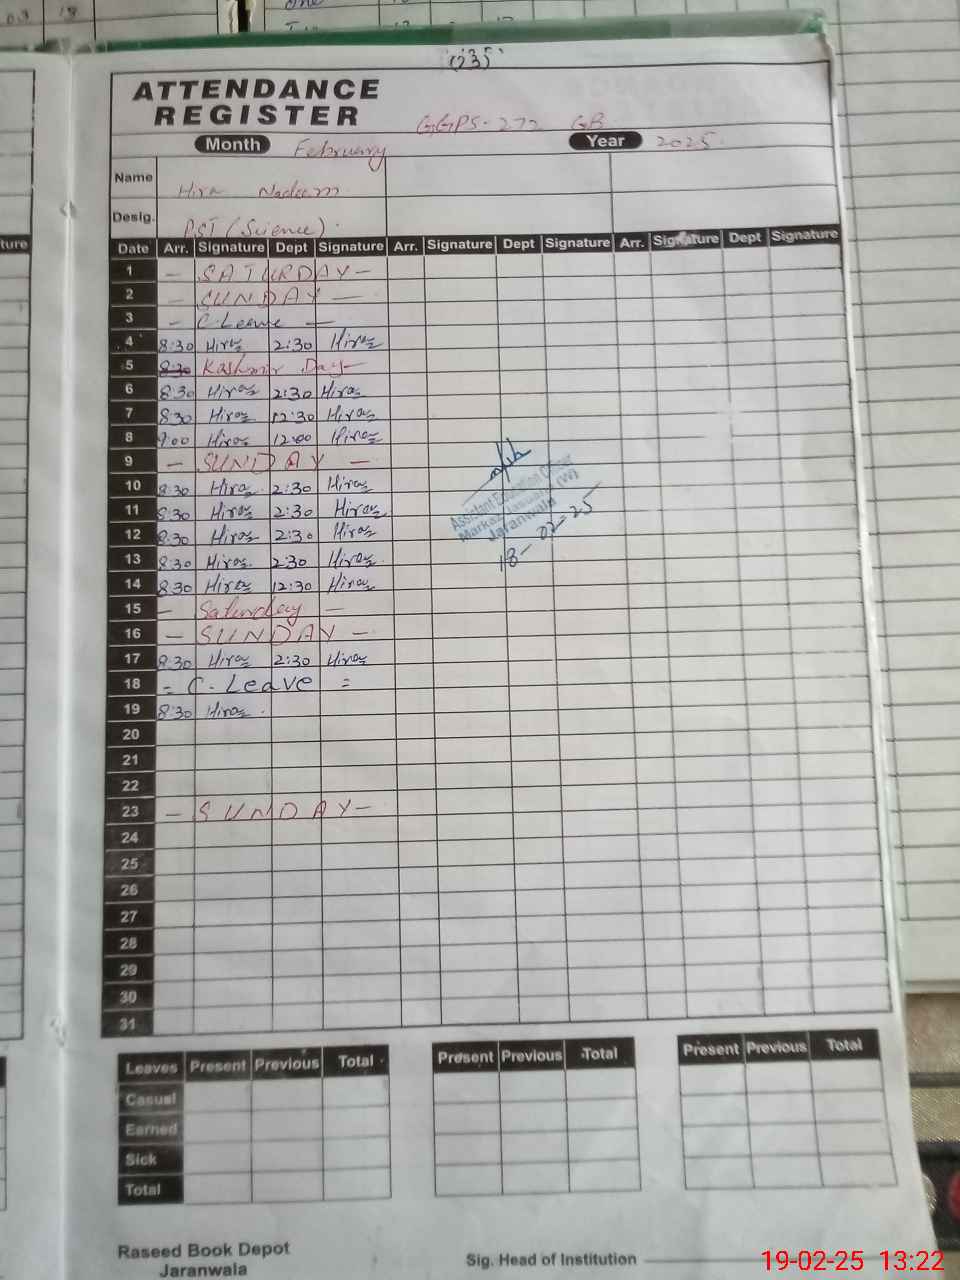 (23)
ATTENDANCE
REGISTER
GGPS-272 GB
Month February Year 2025
Name Hira Nadeem
Desig. PST (Science)
Date Arr. Signature Dept Signature Arr. Signature Dept Signature Arr. Signature Dept Signature
1 - SATURDAY -
2 - SUNDAY -
3 - C Leave -
4 8:30 Hira 2:30 Hira
5 8:30 Kashmir Day -
6 8:30 Hira 2:30 Hira
7 8:30 Hira 12:30 Hira
8 9:00 Hira 12:00 Hira
9 - SUNDAY -
10 8:30 Hira 2:30 Hira
11 8:30 Hira 2:30 Hira
12 8:30 Hira 2:30 Hira
13 8:30 Hira 2:30 Hira
14 8:30 Hira 12:30 Hira
15 - Saturday -
16 - SUNDAY -
17 8:30 Hira 2:30 Hira
18 = C. Leave =
19 8:30 Hira
20
21
22
23 - SUNDAY -
24
25
26
27
28
29
30
31
Assistant Education Officer
Markaz (W)
Jaranwala
18-02-25
Leaves Present Previous Total Present Previous Total Present Previous Total
Casual
Earned
Sick
Total
Raseed Book Depot
Jaranwala
Sig. Head of Institution
19-02-25 13:22